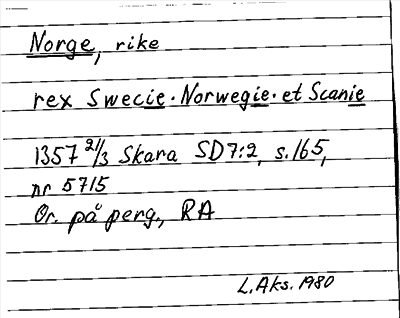 Norge, rike
rex Swecie · Norwegie · et Scanie
1357 21/3 Skara SD7:2, s. 165,
nr 5715
Or. på perg., RA
L. Aks. 1980